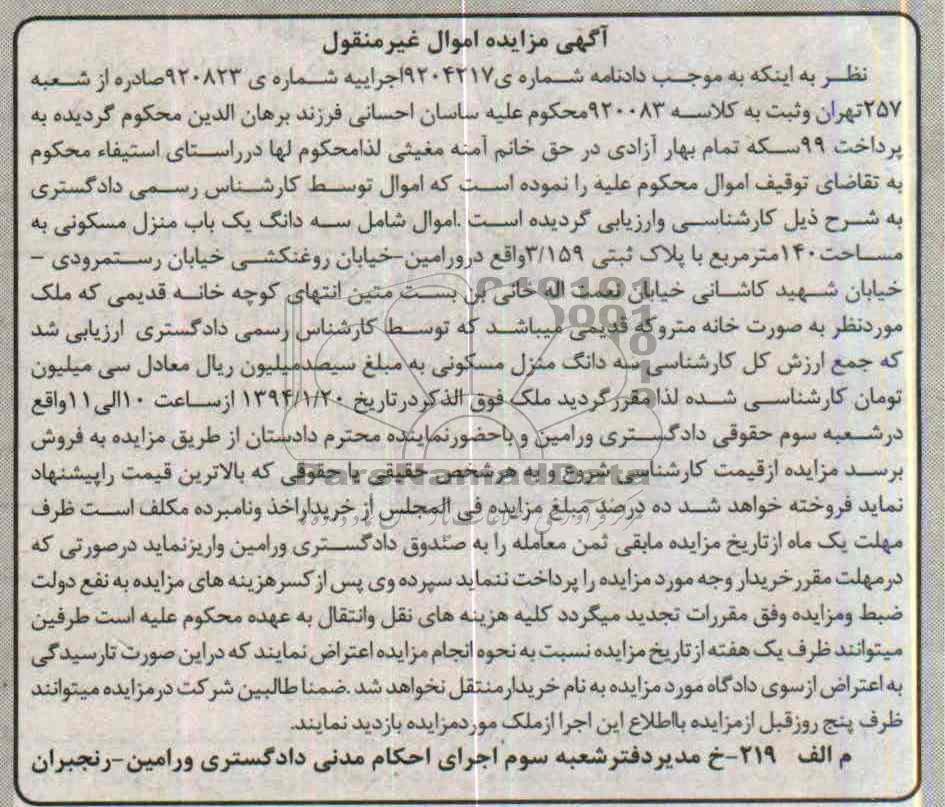 آگهی مزایده اموال غیرمنقول
نظر به اینکه به موجب دادنامه شماره ی۹۲۰۴۲۱۷اجراییه شماره ی ۹۲۰۸۲۳صادره از شعبه
۲۵۷تهران وثبت به کلاسه ۹۲۰۰۸۳محکوم علیه ساسان احسانی فرزند برهان الدین محکوم گردیده به
پرداخت ۹۹سکه تمام بهار آزادی در حق خانم آمنه مغیثی لذامحکوم لها درراستای استیفاء محکوم
به تقاضای توقیف اموال محکوم علیه را نموده است که اموال توسط کارشناس رسمی دادگستری
به شرح ذیل کارشناسی وارزیابی گردیده است .اموال شامل سه دانگ یک باب منزل مسکونی به
مساحت۱۴۰مترمربع با پلاک ثبتی ۳/۱۵۹واقع درورامین-خیابان روغنکشی خیابان رستمرودی -
خیابان شهید کاشانی خیابان نعمت اله خانی بن بست متین انتهای کوچه خانه قدیمی که ملک
موردنظر به صورت خانه متروکه قدیمی میباشد که توسط کارشناس رسمی دادگستری ارزیابی شد
که جمع ارزش کل کارشناسی سه دانگ منزل مسکونی به مبلغ سیصدمیلیون ریال معادل سی میلیون
تومان کارشناسی شده لذا مقررگردید ملک فوق الذکردرتاریخ ۱۳۹۴/۱/۲۰ ازساعت ۱۰الی۱۱واقع
درشعبه سوم حقوقی دادگستری ورامین و باحضورنماینده محترم دادستان از طریق مزایده به فروش
برسد مزایده ازقیمت کارشناسی شروع و به هرشخص حقیقی یا حقوقی که بالاترین قیمت راپیشنهاد
نماید فروخته خواهد شد ده درصد مبلغ مزایده فی المجلس از خریداراخذ ونامبرده مکلف است ظرف
مهلت یک ماه ازتاریخ مزایده مابقی ثمن معامله را به صندوق دادگستری ورامین واریزنماید درصورتی که
درمهلت مقررخریدار وجه مورد مزایده را پرداخت ننماید سپرده وی پس ازکسرهزینه های مزایده به نفع دولت
ضبط ومزایده وفق مقررات تجدید میگردد کلیه هزینه های نقل وانتقال به عهده محکوم علیه است طرفین
میتوانند ظرف یک هفته ازتاریخ مزایده نسبت به نحوه انجام مزایده اعتراض نمایند که دراین صورت تارسیدگی
به اعتراض ازسوی دادگاه مورد مزایده به نام خریدارمنتقل نخواهد شد .ضمنا طالبین شرکت درمزایده میتوانند
ظرف پنج روزقبل ازمزایده بااطلاع این اجرا ازملک موردمزایده بازدید نمایند.
م الف ۲۱۹-خ مدیردفترشعبه سوم اجرای احکام مدنی دادگستری ورامین-رنجبران
ParsNamadData